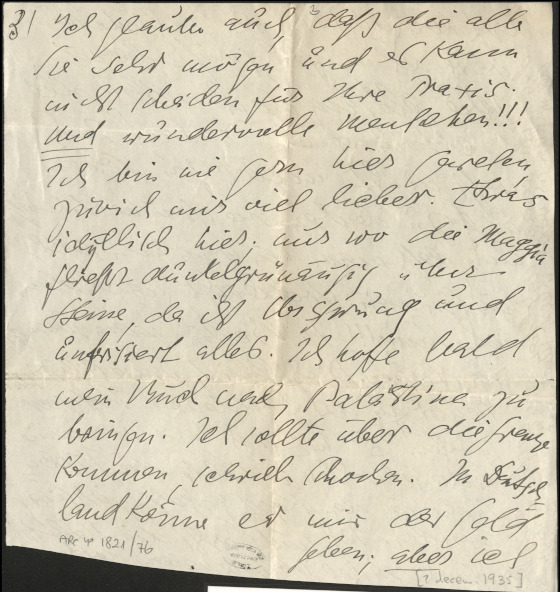 3) Ich glaube auch, daß die alle
Sie sehr mögen und es kann
nicht schaden für Ihre Praxis.
Und wundervolle Menschen!!!
Ich bin nie gern hier gewesen
Zürich mir viel lieber. Etwas
idyllisch hier; nur wo die Maggia
fließt dunkelgrünäugig über
Steine, da ist Ursprung und
unfrisiert alles. Ich hoffe bald
mein Buch nach Palästina zu
bringen. Ich sollte über die Grenze
kommen, schrieb. In Deutsch-
land könne er mir das Geld
geben; aber ich
ARC 4* 1821/76
[? decem. 1935]